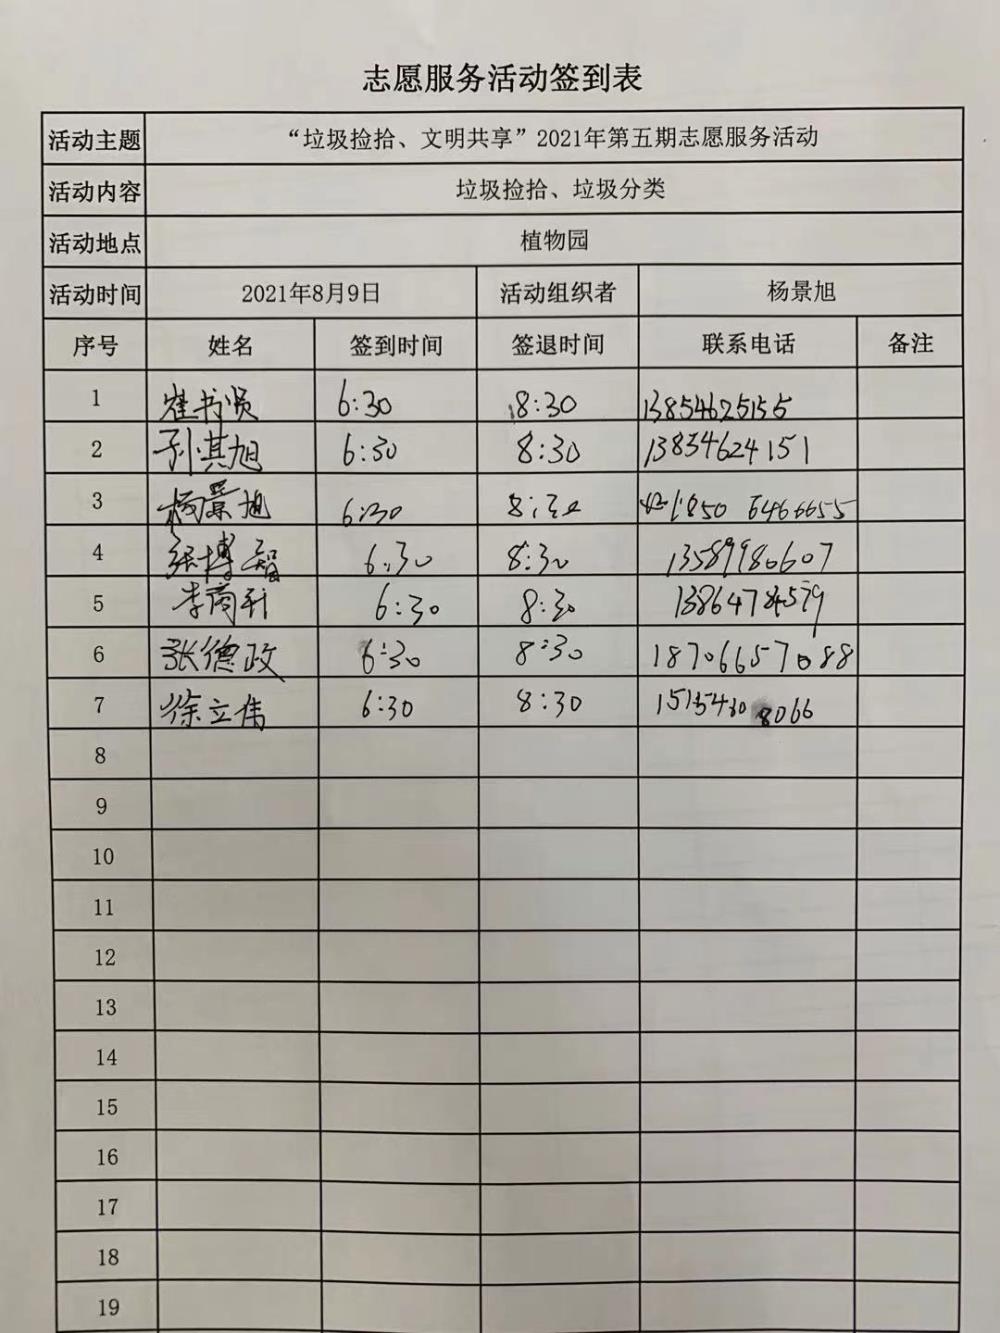 志愿服务活动签到表
活动主题 “垃圾捡拾、文明共享”2021年第五期志愿服务活动
活动内容 垃圾捡拾、垃圾分类
活动地点 植物园
活动时间 2021年8月9日 活动组织者 杨景旭
序号 姓名 签到时间 签退时间 联系电话 备注
1 崔书贤 6:30 8:30 13854625155
2 孙淇旭 6:30 8:30 13854624151
3 杨景旭 6:30 8:30 6466655
4 张博智 6:30 8:30 13589980607
5 李商升 6:30 8:30
6 张德政 6:30 8:30 18706657088
7 徐立伟 6:30 8:30 15154308066
8
9
10
11
12
13
14
15
16
17
18
19